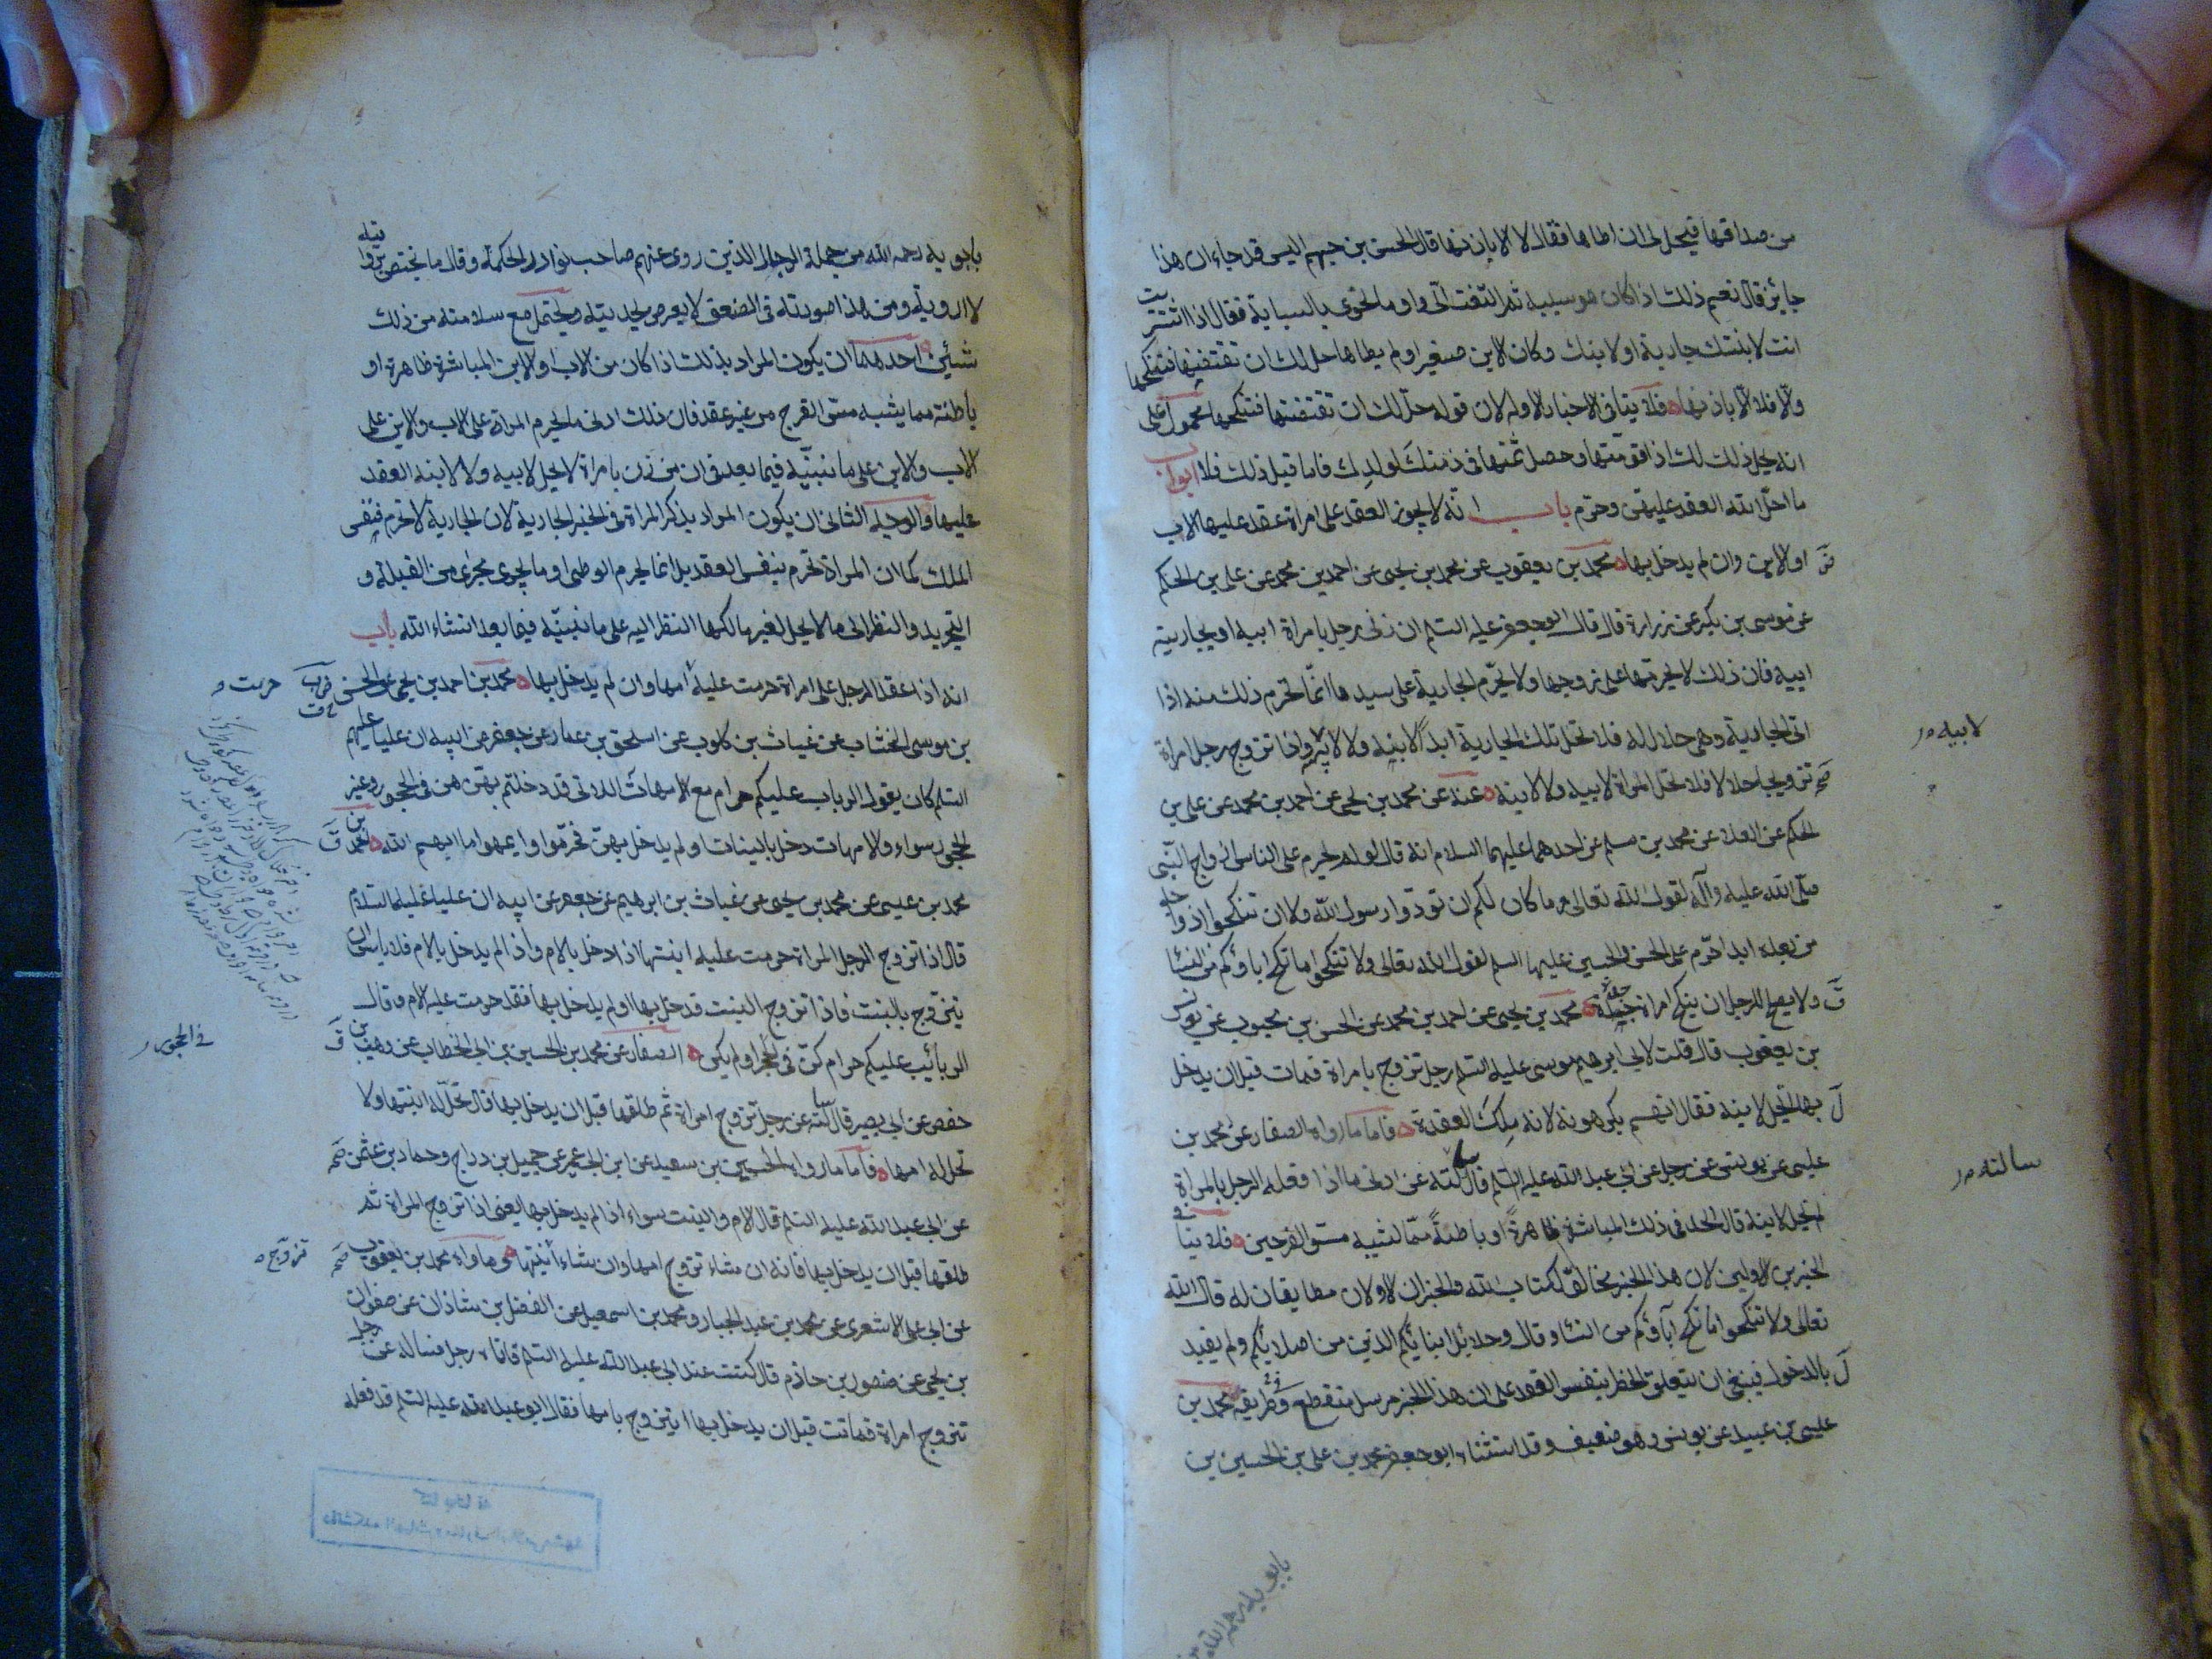 من صداقها فيحل لي ان اطاها فقال لا الا باذنها قال الحسن بن جهم اليس قد جاء ان هذا
جايز قال نعم ذلك اذا كان هو سببه ثم التفت الي واومأ نحوي بالسبابة فقال اذا اشتريت
انت لابنتك جارية او لابنك وكان الابن صغيرا ولم يطاها حل لك ان تفتضها فتنكحها
والا فلا الا باذنهما فلا ينافي الاخبار الاوله لان قوله حل لك ان تفتضها فتنكحها محمول على
انه يحل ذلك لك اذا قومتها وحصل ثمنها في ذمتك لولدك فاما قبل ذلك فلا ابواب
ما احل الله العقد عليهن وحرم باب انه لا يجوز العقد على امراة عقد عليها الاب
او الابن وان لم يدخل بها محمد بن يعقوب عن محمد بن يحيى عن احمد بن محمد عن علي بن الحكم
عن موسى بن بكير عن زرارة قال قال ابو جعفر عليه السلم ان زنى رجل بامراة ابيه او بجارية
ابيه فان ذلك لا يحرمها على زوجها ولا يحرم الجارية على سيدها انما يحرم ذلك منه اذا
اتى الجارية وهي حلال له فلا تحل تلك الجارية ابدا لابنه ولا لابيه واذا تزوج رجل امراة
تزويجا حلالا فلا تحل المراة لابيه ولا لابنه عنه عن محمد بن يحيى عن احمد بن محمد عن علي بن
الحكم عن العلا عن محمد بن مسلم عن احدهما عليهما السلام انه قال لو لم يحرم على الناس ازواج النبي
صلى الله عليه وآله لقول الله تعالى وما كان لكم ان تؤذوا رسول الله ولا ان تنكحوا ازواجه
من بعده ابدا حرم على الحسن والحسين عليهما السلم لقول الله تعالى ولا تنكحوا ما نكح اباؤكم من النسا
ولا يصلح للرجل ان ينكح امراة جده محمد بن يحيى عن احمد بن محمد عن الحسن بن محبوب عن يونس
بن يعقوب قال قلت لابي ابرهيم موسى عليه السلم رجل تزوج بامراة فمات قبل ان يدخل
بها اتحل لابنه فقال انهم يكرهونه لانه ملك العقدة فاما ما رواه الصفار عن محمد بن
عيسى عن يونس عن رجل عن ابي عبد الله عليه السلم قال سالته عن ادنى ما اذا فعله الرجل بالمراة
لم تحل لابنه قال الحد في ذلك المباشرة ظاهرة او باطنة مما يشبه مس الفرجين فلا ينافي
الخبرين الاولين لان هذا الخبر مخالف لكتاب الله والخبران الاولان مطابقان له قال الله
تعالى ولا تنكحوا ما نكح آباؤكم من النسا وقال وحلائل ابنائكم الذين من اصلابكم ولم يقيد
بالدخول فينبغي ان يتعلق الحظر بنفس العقد على ان هذا الخبر مرسل منقطع وطريقه محمد بن
عيسى بن عبيد عن يونس وهو ضعيف وقد استثناه ابو جعفر محمد بن علي بن الحسين بن
لابيه
سالته
بابويه رحمه الله
بابويه رحمه الله من جملة الرجال الذين روى عنهم صاحب نوادر الحكمة وقال ما يختص بروايته
لا ارويه ومن هذا صورته في الضعف لا يعرض بحديثه ويحتمل مع سلامته من ذلك
شيئين احدهما ان يكون المراد بذلك اذا كان من الاب او الابن المباشرة ظاهرة او
باطنة مما يشبه مس الفرج من غير عقد فان ذلك ادنى ما يحرم المراة على الاب والابن على
الاب والابن على ما نبينه فيما بعد في ان من زنى بامراة لا يحل لابيه ولا لابنه العقد
عليها والوجه الثاني ان يكون المراد بذكر المراة في الخبر الجارية لان الجارية لا تحرم بنفس
الملك كما ان المراة تحرم بنفس العقد بل انما يحرم الوطي او ما يجري مجرى من القبلة و
التجريد والنظر الى ما لا يحل لغير مالكها النظر اليه على ما نبينه فيما بعد انشاء الله باب
انه اذا عقد الرجل على امراة حرمت عليه امها وان لم يدخل بها محمد بن احمد بن يحيى عن الحسن
بن موسى الخشاب عن غياث بن كلوب عن اسحق بن عمار عن جعفر عن ابيه ان عليا عليهم
السلم كان يقول الربايب عليكم حرام مع الامهات اللاتي قد دخلتم بهن هن في الحجور وغير
الحجور سواء والامهات دخل بالبنات او لم يدخل بهن فحرموا وابهموا ما ابهم الله احمد بن
محمد بن عيسى عن محمد بن يحيى عن غياث بن ابرهيم عن جعفر عن ابيه ان عليا عليه السلام
قال اذا تزوج الرجل المراة حرمت عليه ابنتها اذا دخل بالام واذا لم يدخل بالام فلا باس ان
يتزوج بالبنت فاذا تزوج البنت قد دخل بها او لم يدخل بها فقد حرمت عليه الام وقال
الربائب عليكم حرام كن في الحجر او لم يكن الصفار عن محمد بن الحسين بن ابي الخطاب عن وهيب بن
حفص عن ابي بصير قال سالته عن رجل تزوج امراة ثم طلقها قبل ان يدخل بها قال تحل له ابنتها ولا
تحل له امها فاما ما رواه الحسين بن سعيد عن ابن ابي عمير عن جميل بن دراج وحماد بن عثمن
عن ابي عبد الله عليه السلم قال الام والبنت سواء اذا لم يدخل بها يعني اذا تزوج المراة ثم
طلقها قبل ان يدخل بها فانه ان شاء تزوج امها وان شاء ابنتها وما رواه محمد بن يعقوب
عن ابي علي الاشعري عن محمد بن عبد الجبار ومحمد بن اسمعيل عن الفضل بن شاذان عن صفوان
بن يحيى عن منصور بن حازم قال كنت عند ابي عبد الله عليه السلم فاتاه رجل فساله عن رجل
تزوج امراة فماتت قبل ان يدخل بها ايتزوج بامها فقال ابو عبد الله عليه السلم قد فعله
حرمت
في الحجور
تزوج